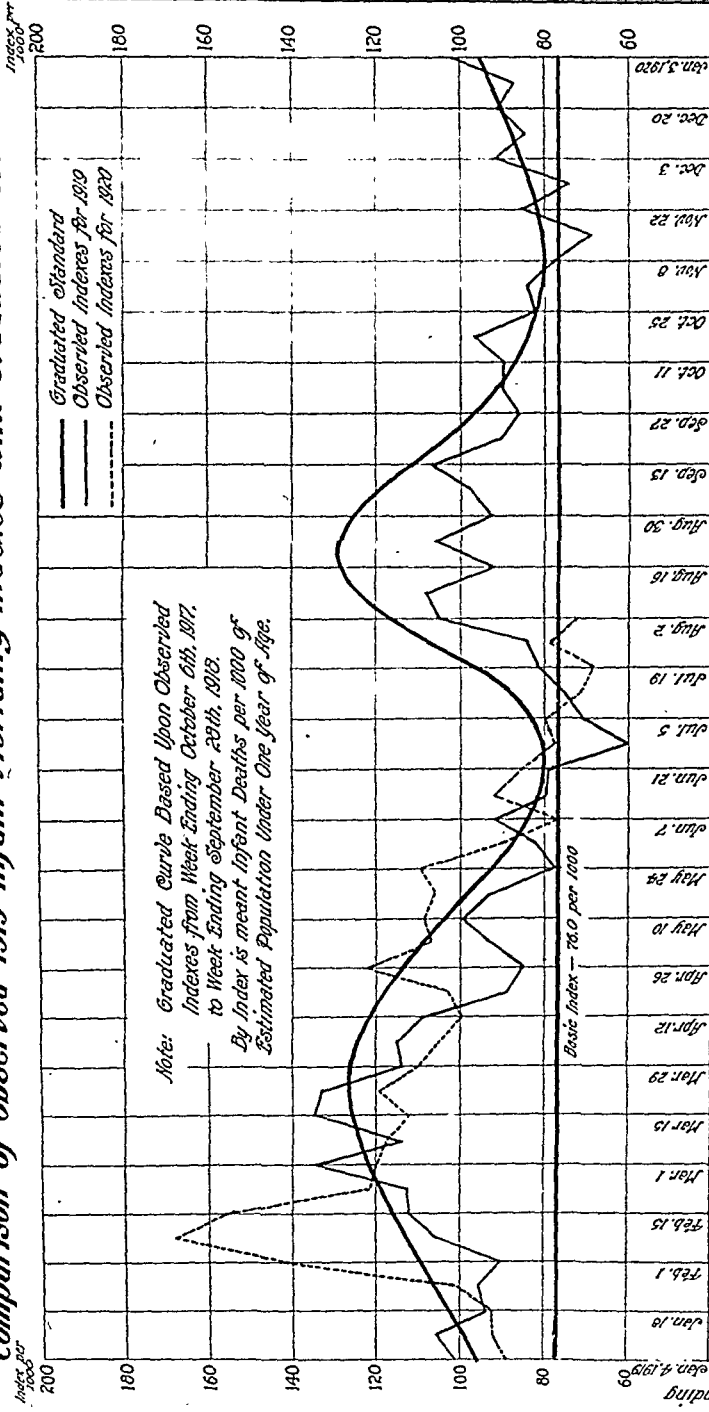 Comparison of Observed 1919 Infant Mortality Indices with
Index per
1000
200
180
160
140
120
100
80
60
Index per
1000
200
180
160
140
120
100
80
60
Graduated Standard
Observed Indexes for 1919
Observed Indexes for 1920
Note: Graduated Curve Based Upon Observed
Indexes from Week Ending October 6th, 1917,
to Week Ending September 28th, 1918.
By Index is meant Infant Deaths per 1000 of
Estimated Population Under One Year of Age.
Basic Index — 76.0 per 1000
Jan. 4, 1919
Jan. 18
Feb. 1
Feb. 15
Mar. 1
Mar. 15
Mar. 29
Apr. 12
Apr. 26
May 10
May 24
Jun. 7
Jun. 21
Jul. 5
Jul. 19
Aug. 2
Aug. 16
Aug. 30
Sep. 13
Sep. 27
Oct. 11
Oct. 25
Nov. 8
Nov. 22
Dec. 3
Dec. 20
Jan. 3, 1920